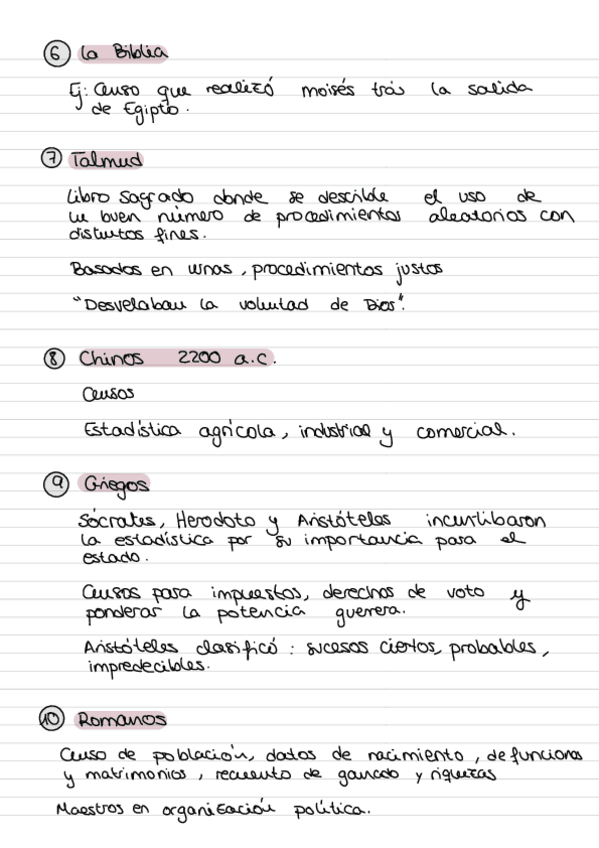 ⑥ La Biblia
Ej: Censo que realizó moisés trás la salida
de Egipto.
⑦ Talmud
Libro Sagrado donde se describe el uso de
un buen número de procedimientos aleatorios con
distintos fines.
Basados en urnas, procedimientos justos
"Desvelaban la voluntad de Dios".
⑧ Chinos 2200 a.c.
Censos
Estadística agrícola, industrial y comercial.
⑨ Griegos
Sócrates, Herodoto y Aristóteles
la estadística por su importancia para el
estado.
Censos para impuestos, derechos de voto y
ponderar la potencia guerrera.
Aristóteles clasificó: sucesos ciertos, probables,
impredecibles.
⑩ Romanos
Censo de población, datos de nacimiento, defunciones
y matrimonios, recuento de ganado y riquezas
Maestros en organización política.